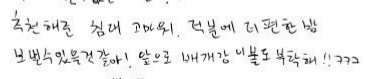 추천해준 침대 고마워. 덕분에 더 편한 밤
보낼수있을것 같아! 앞으로 베개랑 이불도 부탁해!! ㅋㅋㅋ